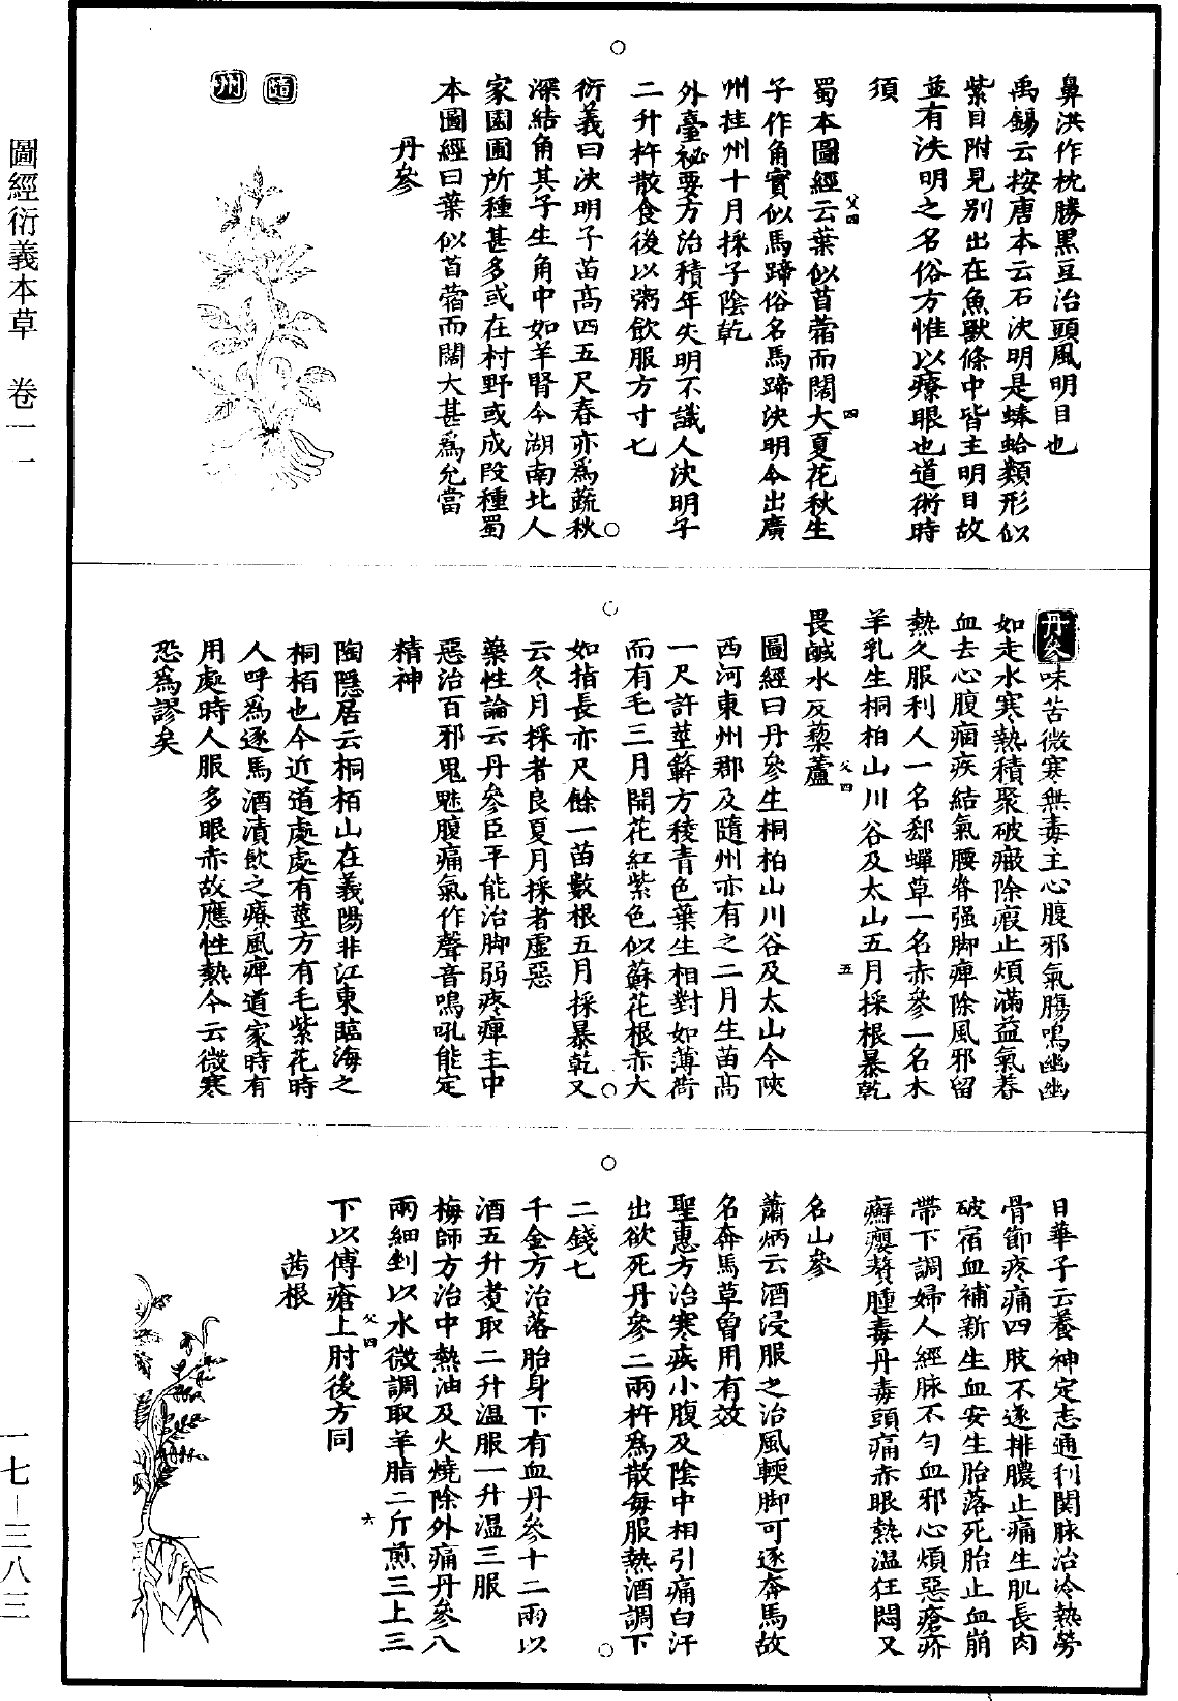 鼻洪作枕勝黑豆治頭風明目也
禹錫云按唐本云石決明是蜯蛤類形似
紫貝附見別出在魚獸條中皆主明目故
並有決明之名俗方惟以療眼也道術時
須
蜀本圖經云葉似苜蓿而闊大夏花秋生
父四
四
子作角實似馬蹄俗名馬蹄決明今出廣
州桂州十月採子陰乾
外臺祕要方治積年失明不識人決明子
二升杵散食後以粥飲服方寸七
衍義曰決明子苗高四五尺春亦為蔬秋
深結角其子生角中如羊腎今湖南北人
家園圃所種甚多或在村野或成段種蜀
本圖經曰葉似苜蓿而闊大甚為允當
丹參
隨
州
丹參味苦微寒無毒主心腹邪氣腸鳴幽幽
如走水寒熱積聚破癥除瘕止煩滿益氣養
血去心腹痼疾結氣腰脊强脚痺除風邪留
熱久服利人一名郄蟬草一名赤參一名木
羊乳生桐柏山川谷及太山五月採根暴乾
父四
五
畏鹹水反藜蘆
圖經曰丹參生桐柏山川谷及太山今陝
西河東州郡及隨州亦有之二月生苗高
一尺許莖簳方稜青色葉生相對如薄荷
而有毛三月開花紅紫色似蘇花根赤大
如指長亦尺餘一苗數根五月採暴乾又
云冬月採者良夏月採者虛惡
藥性論云丹參臣平能治脚弱疼痺主中
惡治百邪鬼魅腹痛氣作聲音鳴吼能定
精神
陶隱居云桐栢山在義陽非江東臨海之
桐栢也今近道處處有莖方有毛紫花時
人呼為逐馬酒漬飲之療風痺道家時有
用處時人服多眼赤故應性熱今云微寒
恐為謬矣
日華子云養神定志通利関脉治冷熱勞
骨節疼痛四肢不遂排膿止痛生肌長肉
破宿血補新生血安生胎落死胎止血崩
帶下調婦人經脉不勻血邪心煩惡瘡疥
癬癭贅腫毒丹毒頭痛赤眼熱溫狂悶又
名山參
蕭炳云酒浸服之治風輭脚可逐奔馬故
名奔馬草曾用有效
聖惠方治寒疾小腹及陰中相引痛白汗
出欲死丹參二兩杵為散每服熱酒調下
二錢七
千金方治落胎身下有血丹參十二兩以
酒五升煑取二升温服一升温三服
梅師方治中熱油及火燒除外痛丹參八
兩細剉以水微調取羊脂二斤煎三上三
下以傅瘡上肘後方同
父四
六
茜根
圖經衍義本草　卷一一
一七－三八三